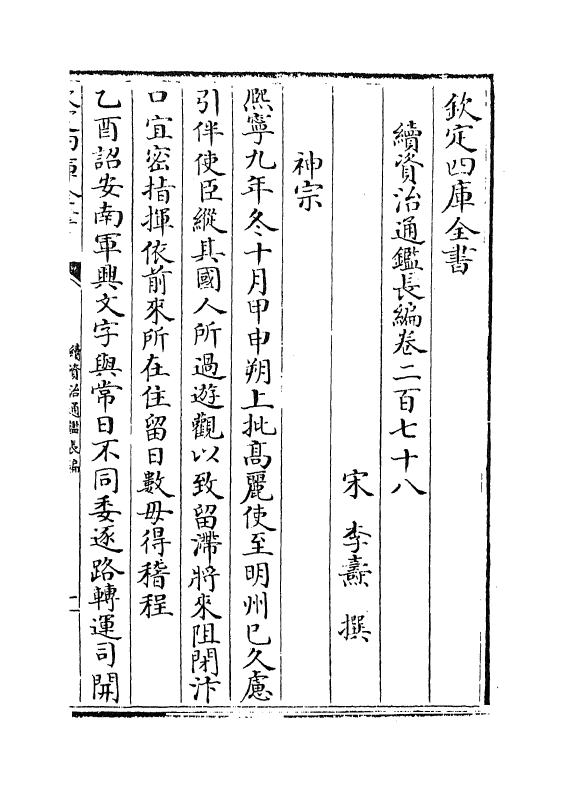 欽定四庫全書
續資治通鑑長編卷二百七十八
宋 李燾 撰
神宗
熈寧九年冬十月甲申朔上批髙麗使至明州已久慮
引伴使臣縱其國人所過遊觀以致留滯將來阻閉汴
口宜密指揮依前來所在住留日數毋得稽程
乙酉詔安南軍興文字與常日不同委逐路轉運司開
續資治通鑑長編